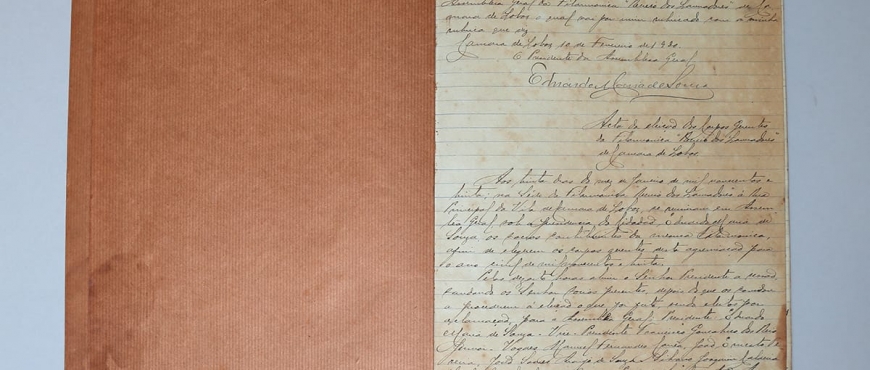 Assembleia Geral da Filarmonica "Recreio dos Lavradores" de Ca-
mara de Lobos o qual vai por mim rubricado com a minha
rubrica que diz
Camara de Lobos 10 de Fevereiro de 1930.
O Presidente da Assembleia Geral
Eduardo Maria de Souza
Acta da eleição dos Corpos Gerentes
da Filarmonica "Recreio dos Lavradores"
de Camara de Lobos
Aos trinta dias do mez de Janeiro de mil novecentos e
trinta, na Séde da Filarmonica "Recreio dos Lavradores" á Rua
Principal da Vila de Camara de Lobos, se reuniram em Assem-
bleia Geral sob a presidencia do cidadão Eduardo Maria de
Souza os socios da mesma Filarmonica,
afim de elegerem os corpos gerentes desta agremiação para
o ano civil de mil novecentos e trinta.
Pelas horas abriu o Senhor Presidente a sessão,
os Senhores socios presentes, depois do que os convidou
a procederem á eleição o que foi feito sendo eleitos por
aclamação, para a Assembleia Geral: Presidente Eduardo
Maria de Souza - Vice-Presidente Francisco Gonçalves
- Vogaes, Manuel Fernandes João Ernesto
João Joaquim